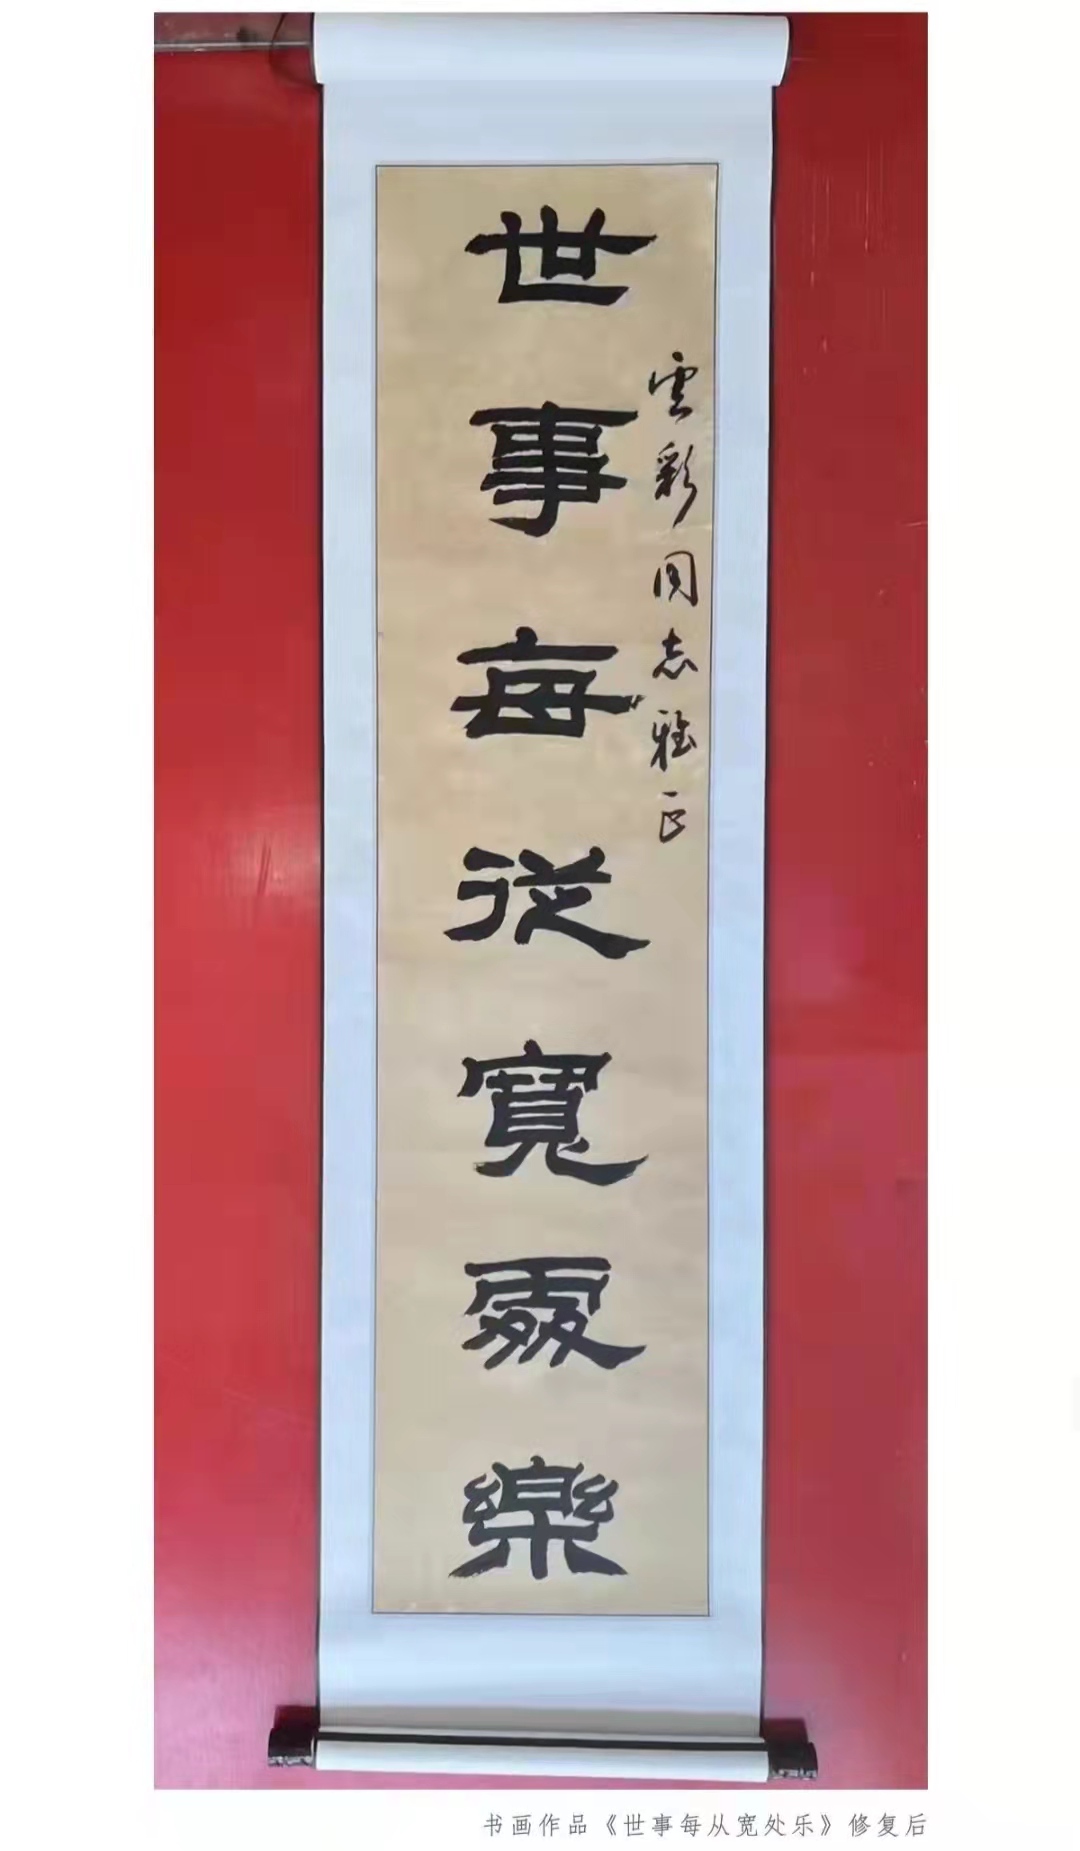 雲彩同志雅正
世事每從寬處樂
书画作品《世事每从宽处乐》修复后